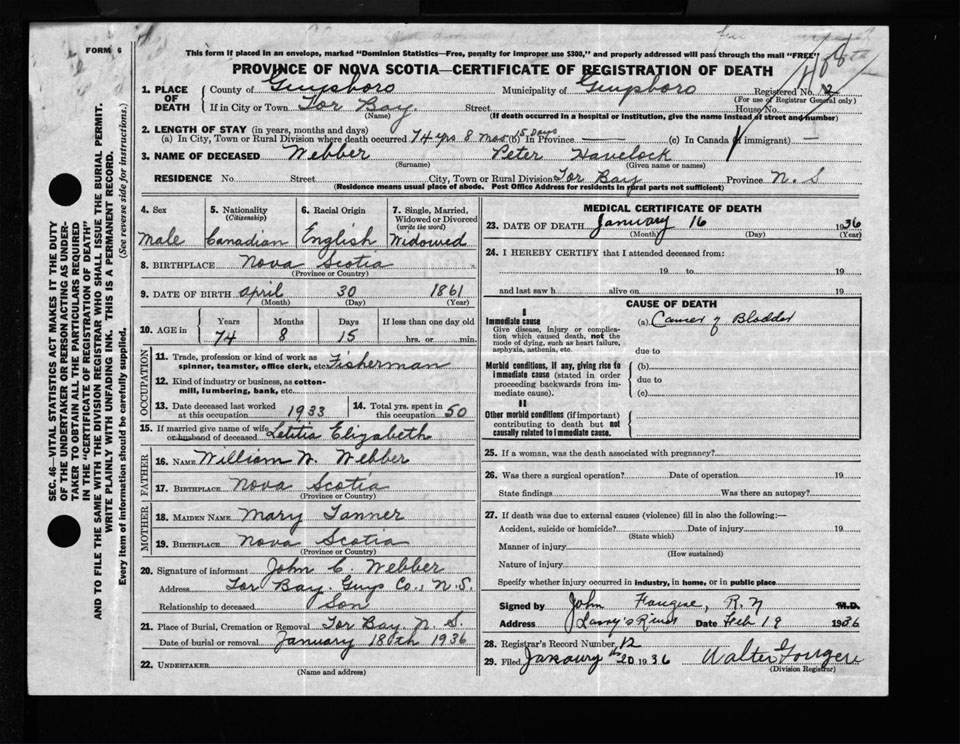 FORM 6
This form if placed in an envelope, marked "Dominion Statistics—Free, penalty for improper use $300," and properly addressed will pass through the mail "FREE"
PROVINCE OF NOVA SCOTIA—CERTIFICATE OF REGISTRATION OF DEATH
1. PLACE OF DEATH
County of Guysboro Municipality of Guysboro Registered No. 12
(For use of Registrar General only)
If in City or Town Tor Bay. Street House No.
(Name) (If death occurred in a hospital or institution, give the name instead of street and number)
2. LENGTH OF STAY (in years, months and days)
(a) In City, Town or Rural Division where death occurred 74 yrs 8 mos 15 days (b) In Province — (c) In Canada (if immigrant) —
3. NAME OF DECEASED Webber Peter Havelock
(Surname) (Given name or names)
RESIDENCE No. Street City, Town or Rural Division Tor Bay Province N. S
(Residence means usual place of abode. Post Office Address for residents in rural parts not sufficient)
SEC. 46—VITAL STATISTICS ACT MAKES IT THE DUTY
OF THE UNDERTAKER OR PERSON ACTING AS UNDERTAKER TO OBTAIN ALL THE PARTICULARS REQUIRED
IN THE "CERTIFICATE OF REGISTRATION OF DEATH"
AND TO FILE THE SAME WITH THE DIVISION REGISTRAR WHO SHALL ISSUE THE BURIAL PERMIT.
WRITE PLAINLY WITH UNFADING INK. THIS IS A PERMANENT RECORD.
Every item of information should be carefully supplied. (See reverse side for instructions.)
4. Sex
Male
5. Nationality (Citizenship)
Canadian
6. Racial Origin
English
7. Single, Married, Widowed or Divorced (write the word)
Widowed
8. BIRTHPLACE Nova Scotia
(Province or Country)
9. DATE OF BIRTH April 30 1861
(Month) (Day) (Year)
10. AGE in Years Months Days If less than one day old
74 8 15 hrs. or min.
OCCUPATION
11. Trade, profession or kind of work as spinner, teamster, office clerk, etc. Fisherman
12. Kind of industry or business, as cotton-mill, lumbering, bank, etc.
13. Date deceased last worked at this occupation 1933
14. Total yrs. spent in this occupation 50
15. If married give name of wife or husband of deceased Letitia Elizabeth
FATHER
16. NAME William W. Webber
17. BIRTHPLACE Nova Scotia
(Province or Country)
MOTHER
18. MAIDEN NAME Mary Tanner
19. BIRTHPLACE Nova Scotia
(Province or Country)
20. Signature of informant John C. Webber
Address Tor Bay. Guys Co., N. S.
Relationship to deceased Son
21. Place of Burial, Cremation or Removal Tor Bay. N. S.
Date of burial or removal January 18th 1936
22. UNDERTAKER
(Name and address)
MEDICAL CERTIFICATE OF DEATH
23. DATE OF DEATH January 16 1936
(Month) (Day) (Year)
24. I HEREBY CERTIFY that I attended deceased from:
19 to 19
and last saw h alive on 19
CAUSE OF DEATH
I
Immediate cause
Give disease, injury or complication which caused death, not the mode of dying, such as heart failure, asphyxia, asthenia, etc.
(a) Cancer of Bladder
due to
Morbid conditions, if any, giving rise to immediate cause (stated in order proceeding backwards from immediate cause).
(b)
due to
(c)
II
Other morbid conditions (if important) contributing to death but not causally related to immediate cause.
25. If a woman, was the death associated with pregnancy?
26. Was there a surgical operation? Date of operation 19
State findings Was there an autopsy?
27. If death was due to external causes (violence) fill in also the following:—
Accident, suicide or homicide? Date of injury 19
(State which)
Manner of injury
(How sustained)
Nature of injury
Specify whether injury occurred in industry, in home, or in public place
Signed by John R. N M.D.
Address Date Feb 19 1936
28. Registrar's Record Number 12
29. Filed January 20 1936 Walter Fougere
(Division Registrar)